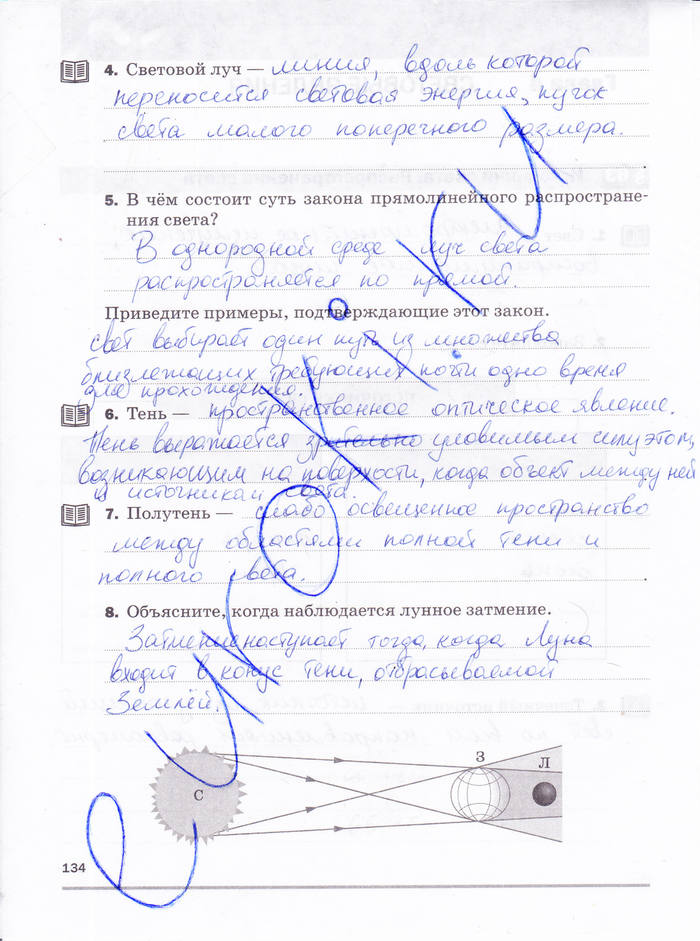 4. Световой луч — линия, вдоль которой
переносится световая энергия, пучок
света малого поперечного размера.
5. В чём состоит суть закона прямолинейного распростране-
ния света?
В однородной среде луч света
распространяется по прямой.
Приведите примеры, подтверждающие этот закон.
свет выбирает один путь из множества
близлежащих требующих почти одно время
для прохождения.
6. Тень — пространственное оптическое явление.
Тень выражается зрительно уловимым силуэтом,
возникающим на поверхности, когда объект между ней
и источником света.
7. Полутень — слабо освещенное пространство
между областями полной тени и
полного света.
8. Объясните, когда наблюдается лунное затмение.
Затмение наступает тогда, когда Луна
входит в конус тени, отбрасываемой
Землёй.
С З Л
134